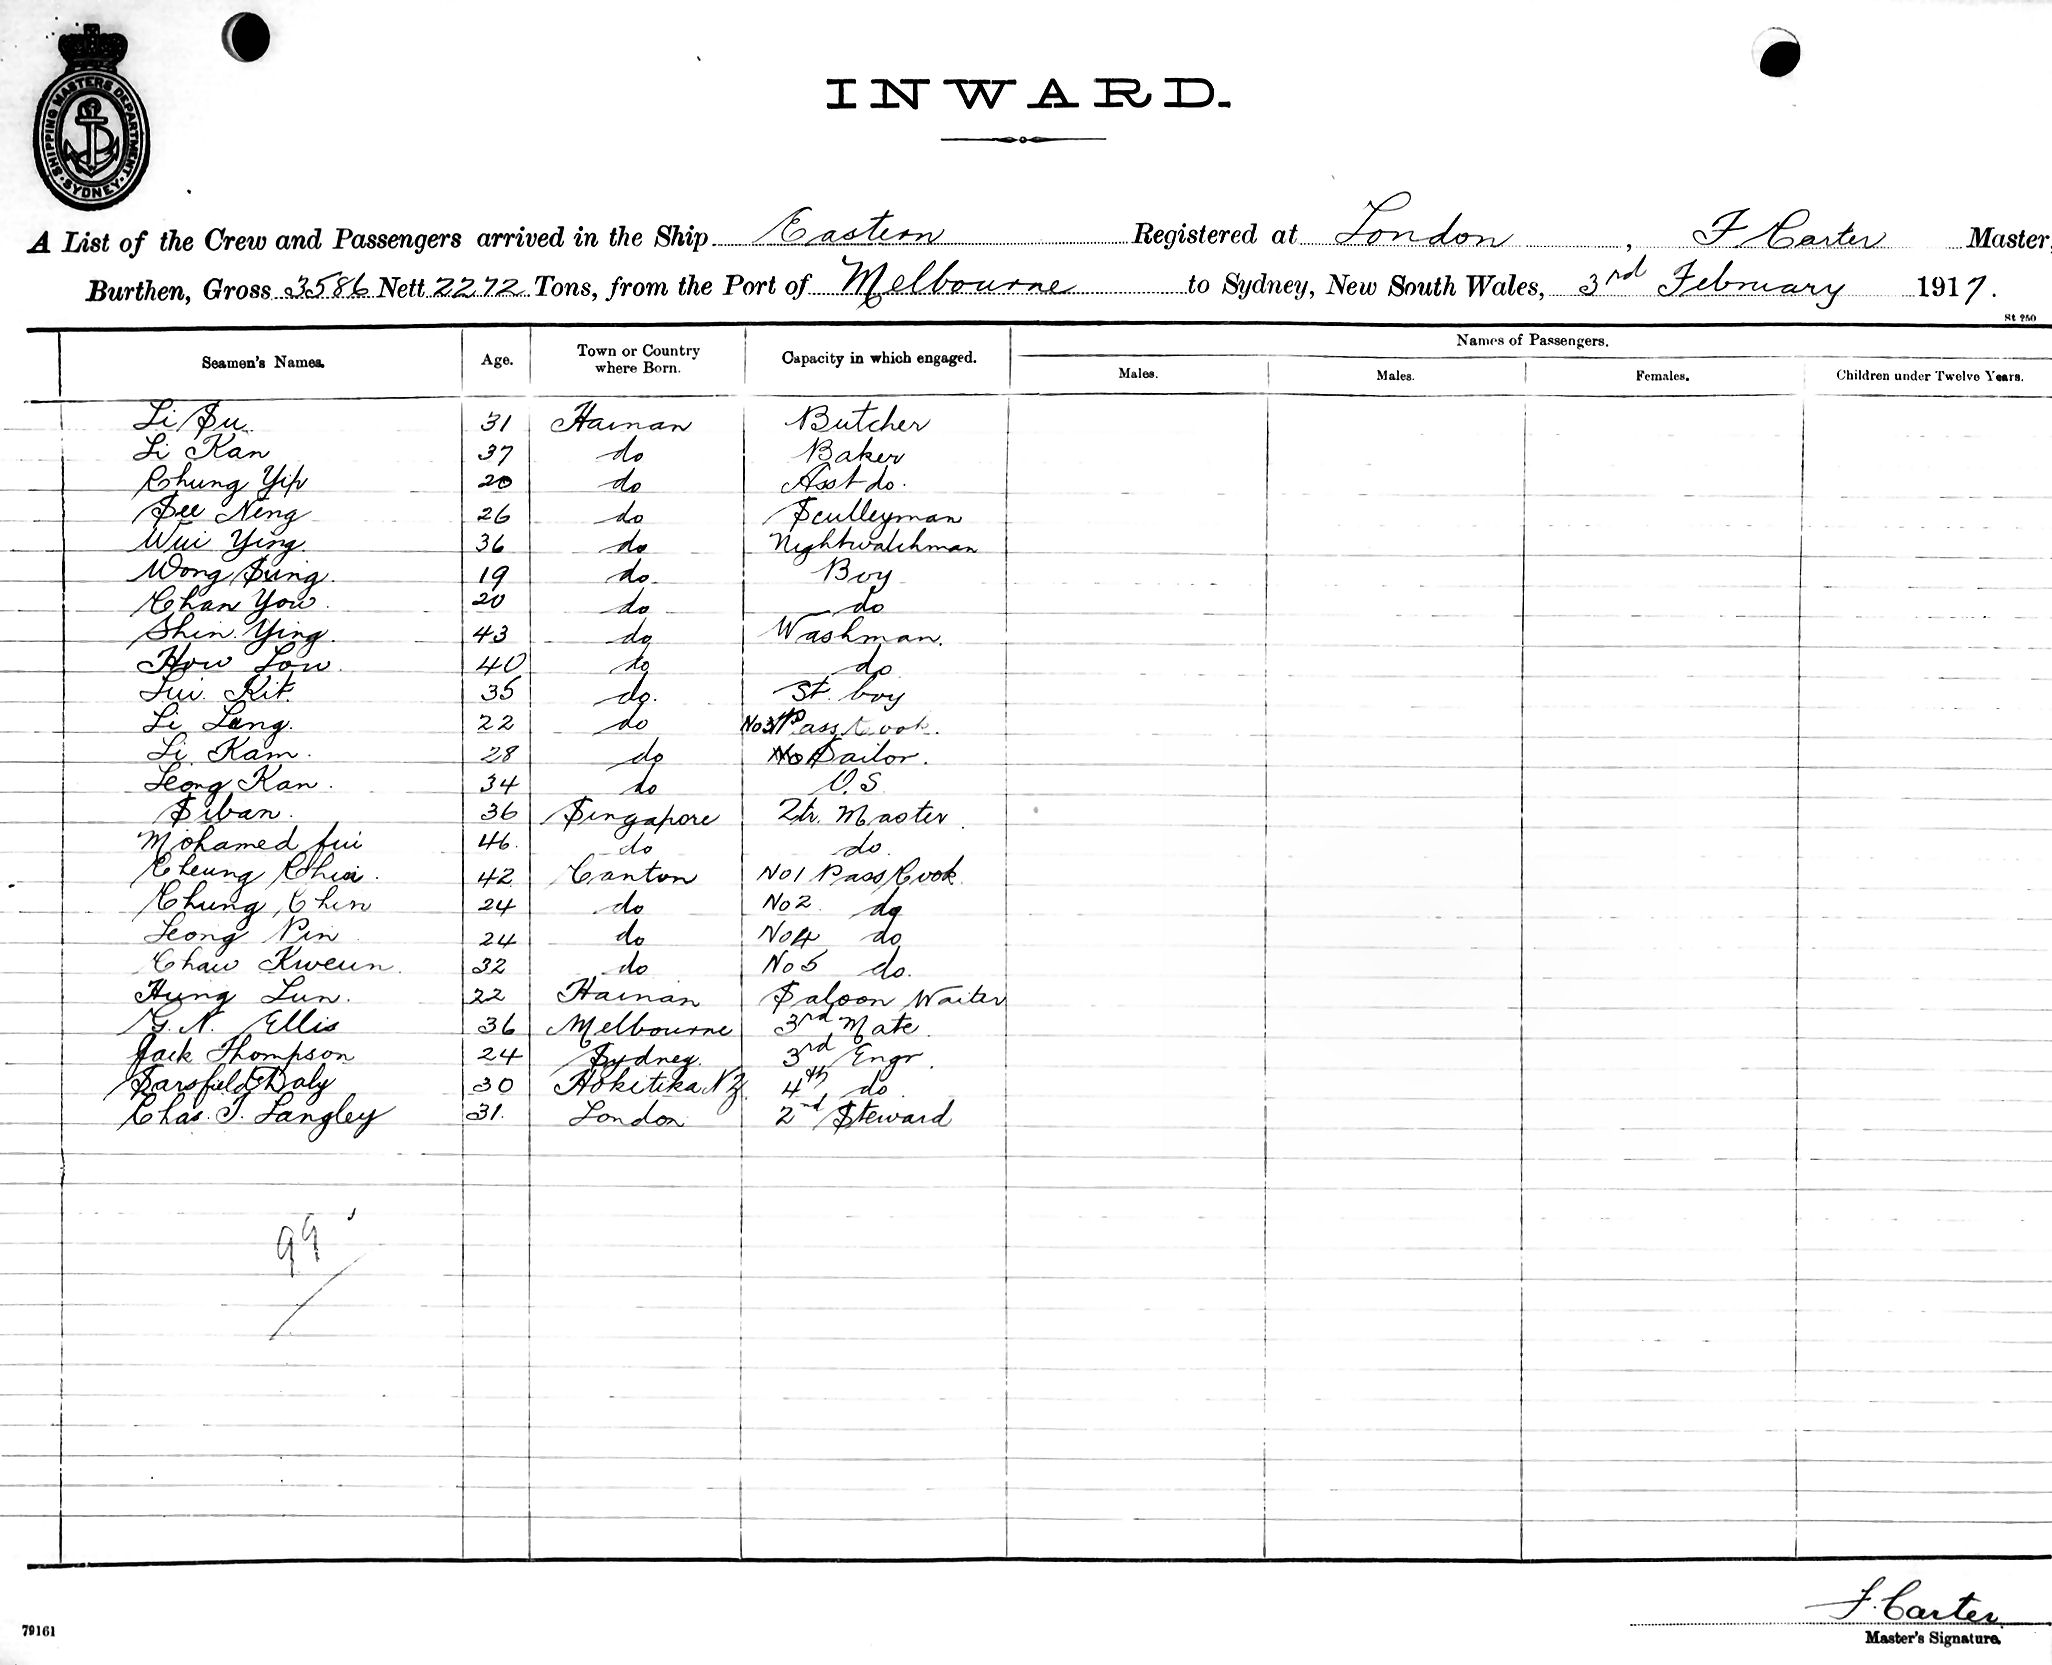 SHIPPING MASTERS DEPARTMENT · SYDNEY ·
INWARD.
A List of the Crew and Passengers arrived in the Ship Eastern Registered at London, F Carter Master,
Burthen, Gross 3586 Nett 2272 Tons, from the Port of Melbourne to Sydney, New South Wales, 3rd February 1917.
St 250
Seamen's Names. Age. Town or Country where Born. Capacity in which engaged. Names of Passengers.
Males. Males. Females. Children under Twelve Years.
Li Su. 31 Hainan Butcher
Li Kan 37 do Baker
Chung Yip 20 do Asst do.
See Neng 26 do Sculleyman
Wui Ying. 36 do Nightwatchman
Wong Sing. 19 do Boy
Chan You. 20 do do
Shin Ying. 43 do Washman.
How Low. 40 do do
Lui Kit. 35 do. St. boy
Li Leng. 22 do No3 Pass Cook.
Li Kam. 28 do Sailor.
Leong Kan. 34 do O.S
Siban. 36 Singapore Qtr. Master.
Mohamed 46. do do.
Cheung 42 Canton No1 Pass Cook.
Chung Chin 24 do No2. do
Leong Pin 24 do No4 do
Chaw Kweun. 32 do No5 do.
Hung Lun. 22 Hainan Saloon Waiter
G. N. Ellis 36 Melbourne 3rd Mate.
Jack Thompson 24 Sydney. 3rd Engr.
Sarsfield Daly 30 Hokitika NZ. 4th do
Chas. T. Langley 31. London 2nd Steward
99
F. Carter
79161 Master's Signature.